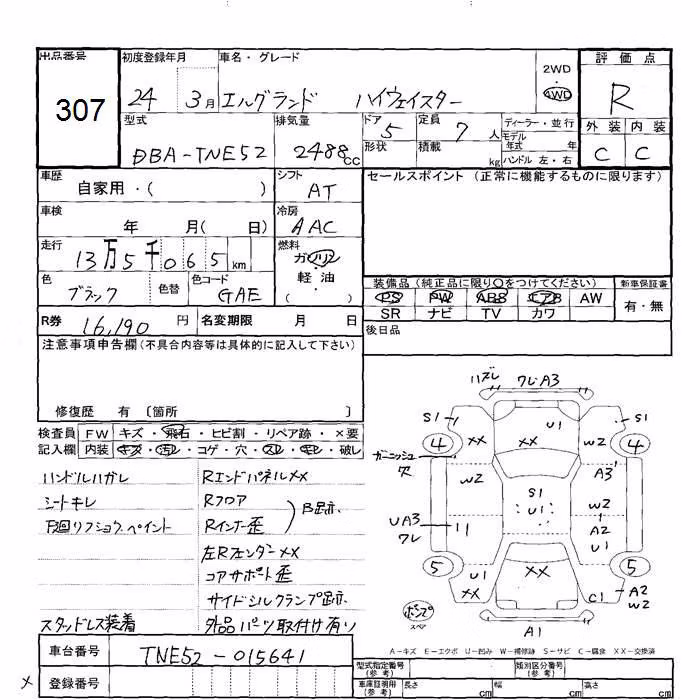 出品番号
307
初度登録年月
24 3月
車名・グレード
エルグランド ハイウェイスター
2WD
・
4WD
評価点
R
型式
DBA-TNE52
排気量
2488cc
ドア 5
形状
定員 7 人
積載 kg
ディーラー・並行
モデル年式 年
ハンドル 左・右
外装 内装
C C
車歴
自家用・( )
シフト
AT
セールスポイント (正常に機能するものに限ります)
車検
年 月( 日)
冷房
AAC
走行
13万5千065km
燃料
ガソリン
・
軽油
( )
色
ブラック
色替
色コード
GAE
装備品(純正品に限り○をつけてください)
PS PW ABS エアB AW
SR ナビ TV カワ
新車保証書
有・無
R券 16,190 円
名変期限 月 日
後日品
注意事項申告欄(不具合内容等は具体的に記入して下さい)
修復歴 有 〔箇所 〕
検査員 FW キズ・飛石・ヒビ割・リペア跡・×要
記入欄 内装 キズ・汚レ・コゲ・穴・スレ・キレ・破レ
ハンドルハガレ
シートキレ
下廻リフショク、ペイント
スタッドレス装着
Rエンドパネルメメ
Rフロア
Rインナー歪
B跡
左Rフェンダーメメ
コアサポート歪
サイドシルクランプ跡
外品パーツ取付け有り
ハズレ
ワレA3
S1
U1
S1
XX
XX
W2
4
4
ガーニッシュ
穴
W2
A3
S1
U1
W2
UA3
ワレ
A2
U1
5
5
U1
XX
XX
C1
A2
W2
ポンプ
スペア
A1
A-キズ E-エクボ U-凹み W-補修跡 S-サビ C-腐食 XX-交換済
車台番号 TNE52-015641
登録番号
型式指定番号
(参考)
類別区分番号
(参考)
車庫証明用
(参考)
長さ cm 幅 cm 高さ cm